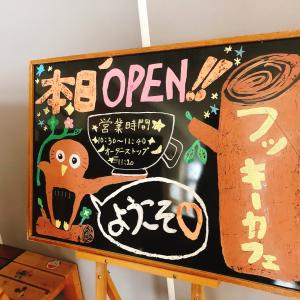 本日OPEN!!
営業時間
10:30〜11:40
オーダーストップ
11:20
ようこそ♡
フッキーカフェ